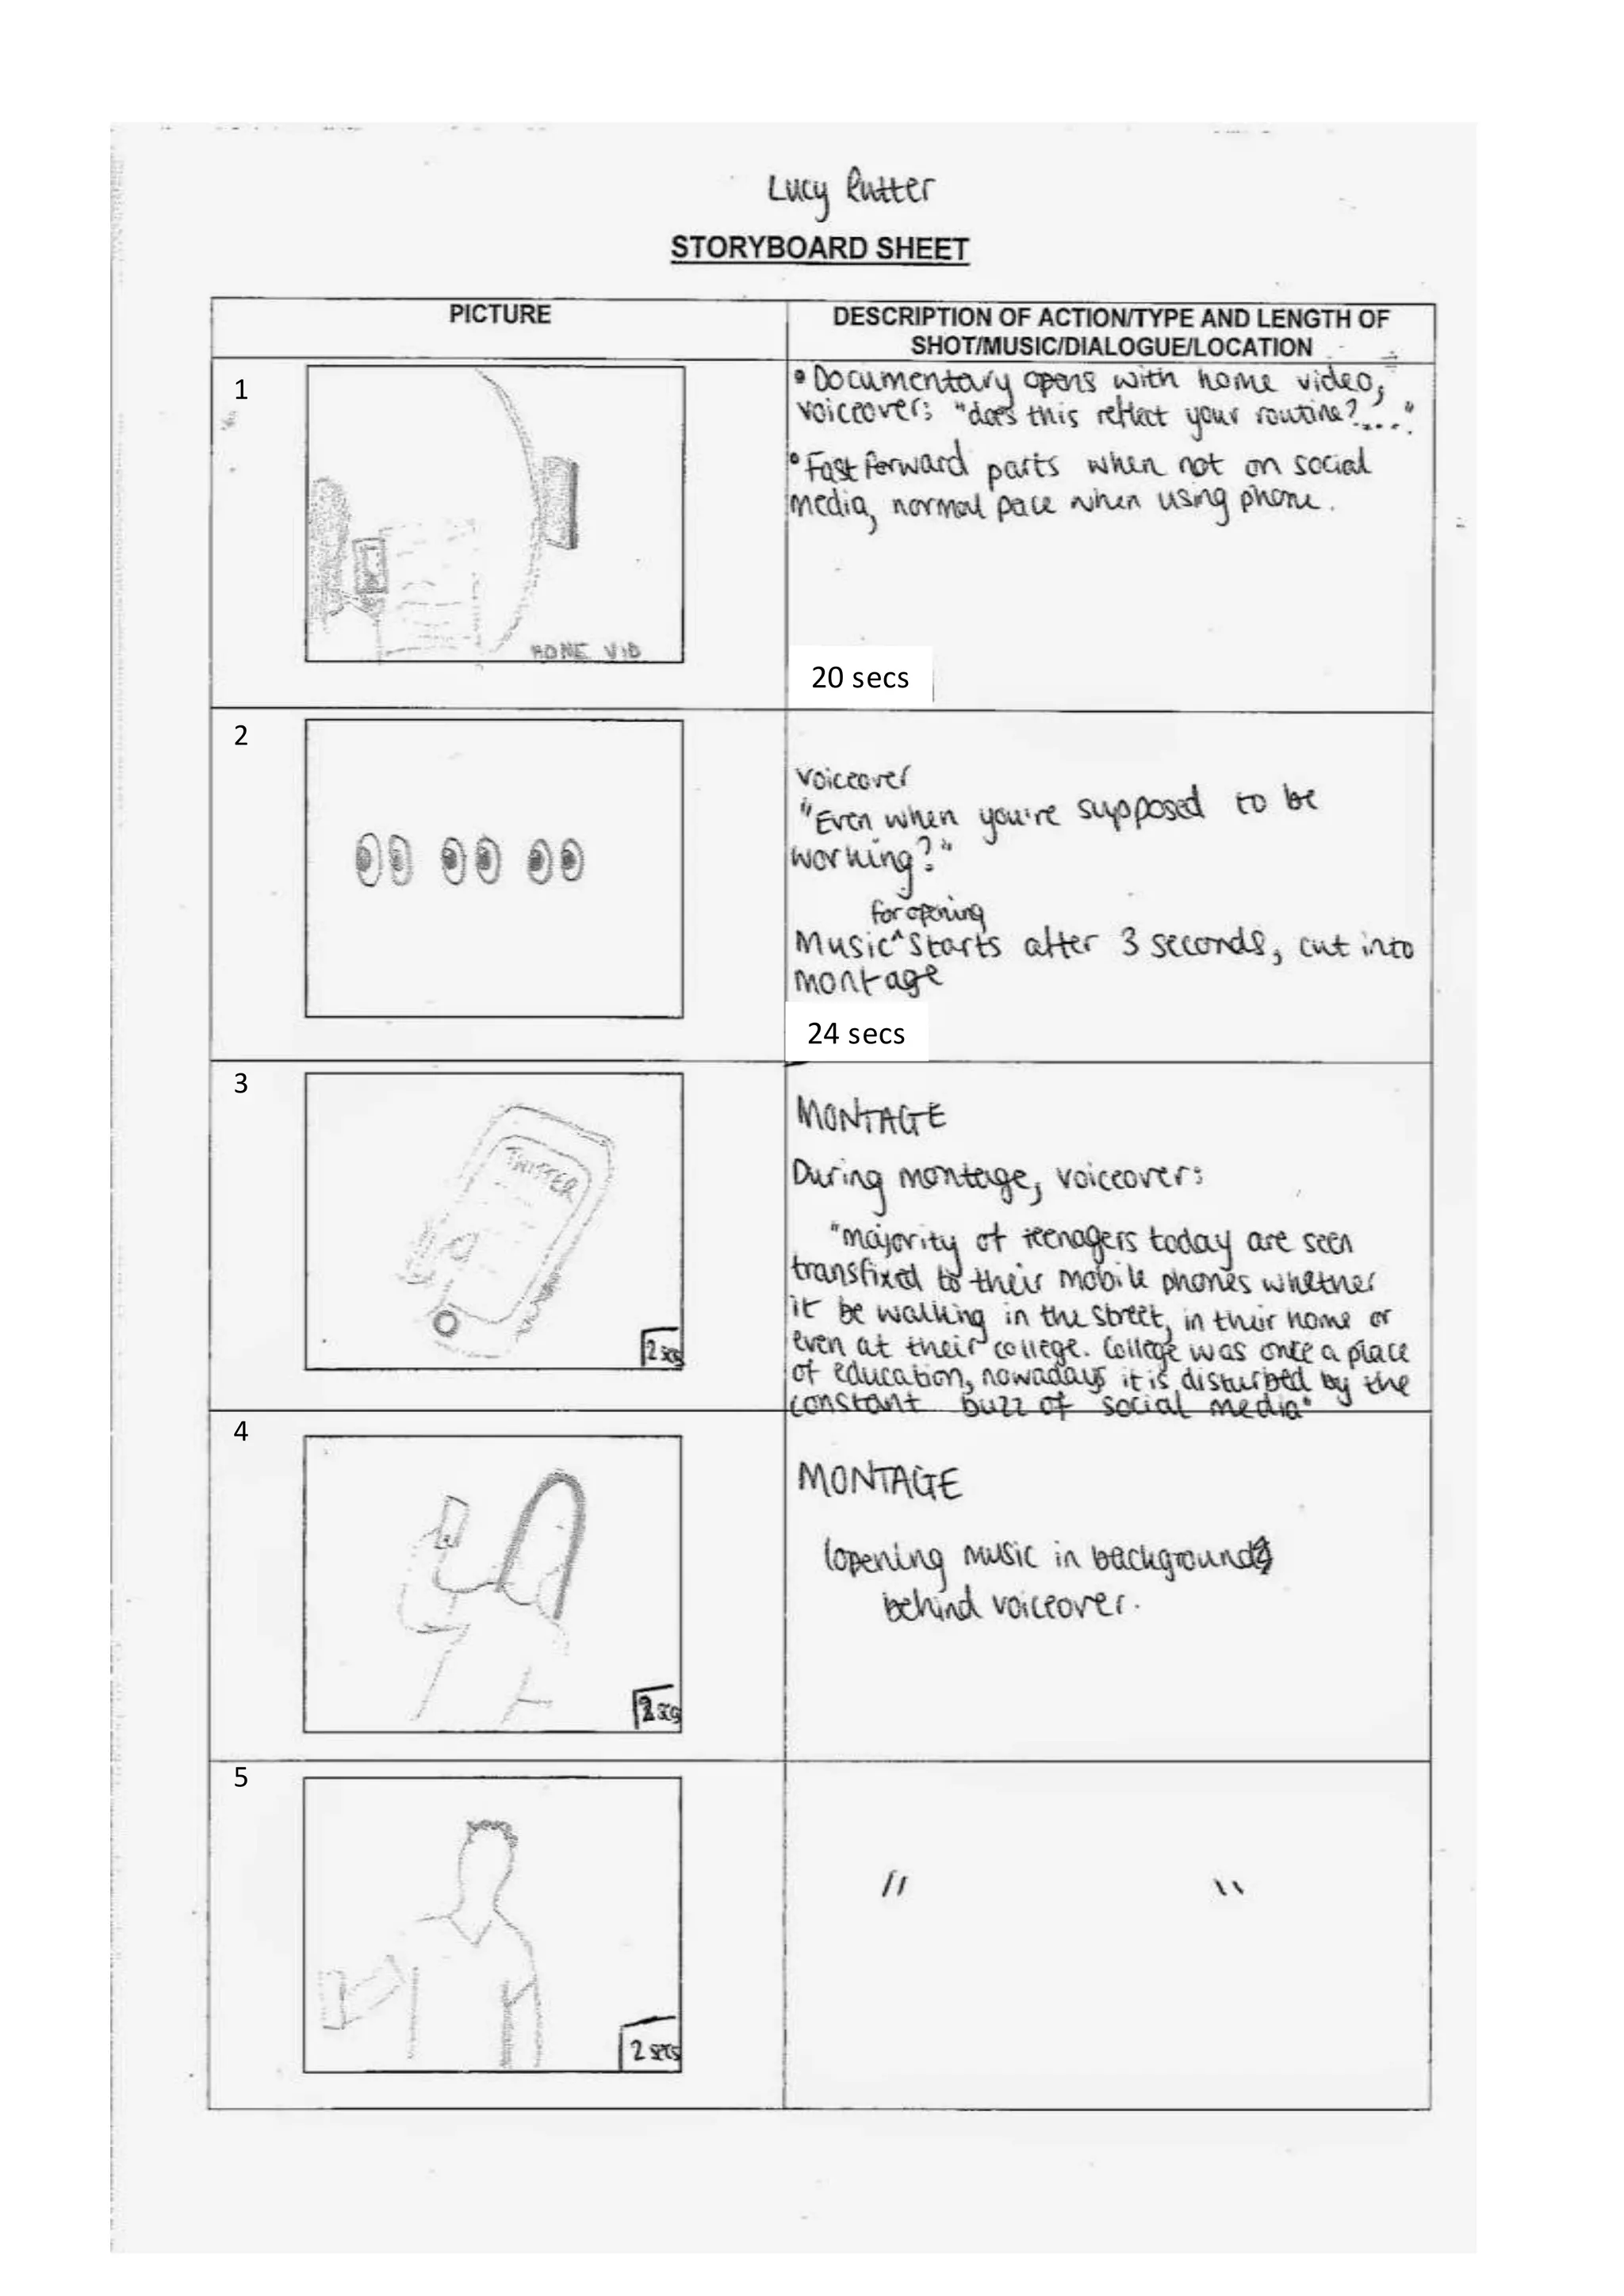 Lucy Rutter
STORYBOARD SHEET
PICTURE
DESCRIPTION OF ACTION/TYPE AND LENGTH OF
SHOT/MUSIC/DIALOGUE/LOCATION
1
HOME VID
• Documentary opens with home video,
voiceover: "does this reflect your routine?...."
• Fast forward parts when not on social
media, normal pace when using phone.
20 secs
2
voiceover
"Even when you're supposed to be
working?"
for opening
Music ^ starts after 3 seconds, cut into
montage
24 secs
3
TWITTER
2 secs
MONTAGE
During montage, voiceover:
"majority of teenagers today are seen
transfixed to their mobile phones whether
it be walking in the street, in their home or
even at their college. College was once a place
of education, nowadays it is disturbed by the
constant buzz of social media"
4
2 secs
MONTAGE
(opening music in background)
behind voiceover.
5
2 secs
" "